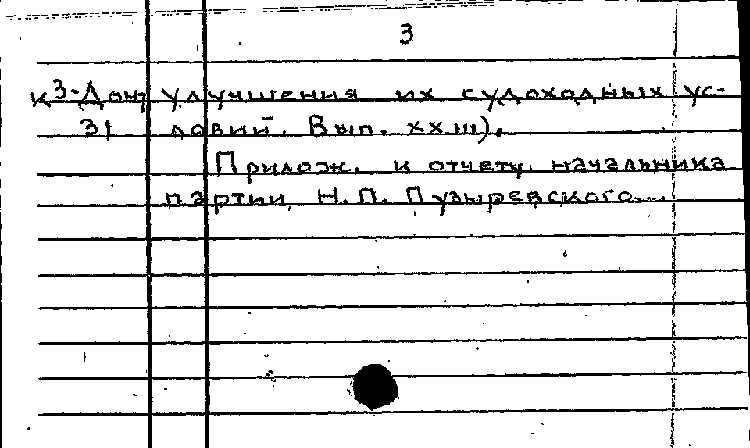 3
К3-Дон улучшения их судоходных ус-
31 ловий. Вып. XXIII).
Прилож. к отчету начальника
партии Н.П. Пузыревского.